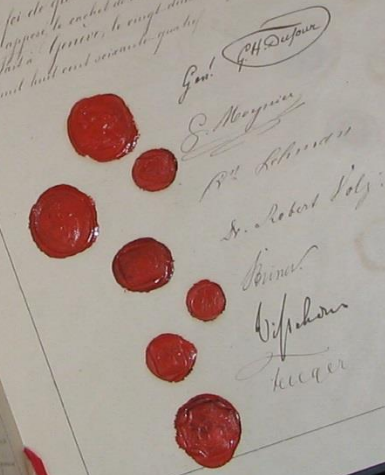 foi de qu
apposé, le cachet de
Fait à Genève, le vingt deux
mil huit cent soixante quatre
Genl. G.H. Dufour
G. Moynier
Lehmann
Dr. Robert Volz
Steiner
Visschers